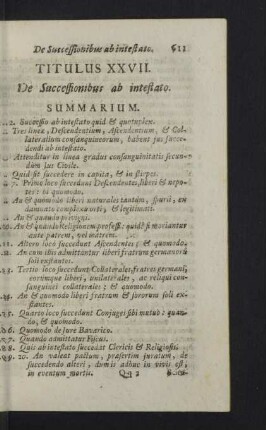 De Successionibus ab intestato. 611
TITULUS XXVII.
De Successionibus ab intestato.
SUMMARIUM.
2. Successio ab intestato quid & quotuplex.
Tres linea, Descendentium, Ascendentium, & Col-
lateralium consanguineorum, habent jus succe-
dendi ab intestato.
Attenditur in linea gradus consanguinitatis secun-
dùm Jus Civile.
Quid sit succedere in capita, & in stirpes.
7. Primo loco succedunt Descendentes, liberi & nepo-
tes: & quomodo.
An & quomodo liberi naturales tantùm, spurii, ex
damnato complexu orti, & legitimati.
An & quando privigni.
10. An & quando Religionem professi: quid si moriantur
ante patrem, vel matrem.
11. Altero loco succedunt Ascendentes; & quomodo.
12. An cum ibis admittantur liberi fratrum germanorū
soli exstantes.
13. Tertio loco succedunt Collaterales, fratres germani,
eorumque liberi, unilaterales, ac reliqui con-
sanguinei collaterales: & quomodo.
An & quomodo liberi fratrum & sororum soli ex-
stantes.
15. Quarto loco succedunt Conjuges sibi mutuò: quan-
do, & quomodo.
16. Quomodo de Jure Bavarico.
17. Quando admittatur Fiscus.
18. Quis ab intestato succedat Clericis & Religiosis.
19. 20. An valeat pactum, præsertim juratum, de
succedendo alteri, dum is adhuc in vivis est,
in eventum mortis. Qq 2